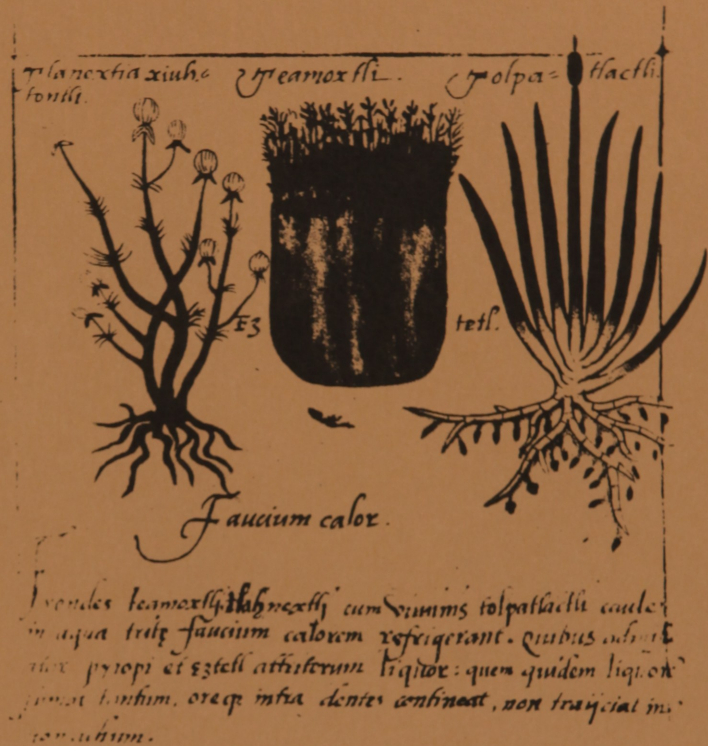 Tlanextia xiuh= Teamoxtli. Tolpa= tlactli.
tontli.
Ez tetl.
Faucium calor.
Frondes teamoxtli, cum summis tolpatlactli caule
in aqua tritę faucium calorem refrigerant. Quibus
pyropi et eztetl attritorum liquor: quem quidem liquorē
tantum, oreq; intra dentes contineat, non traijciat in